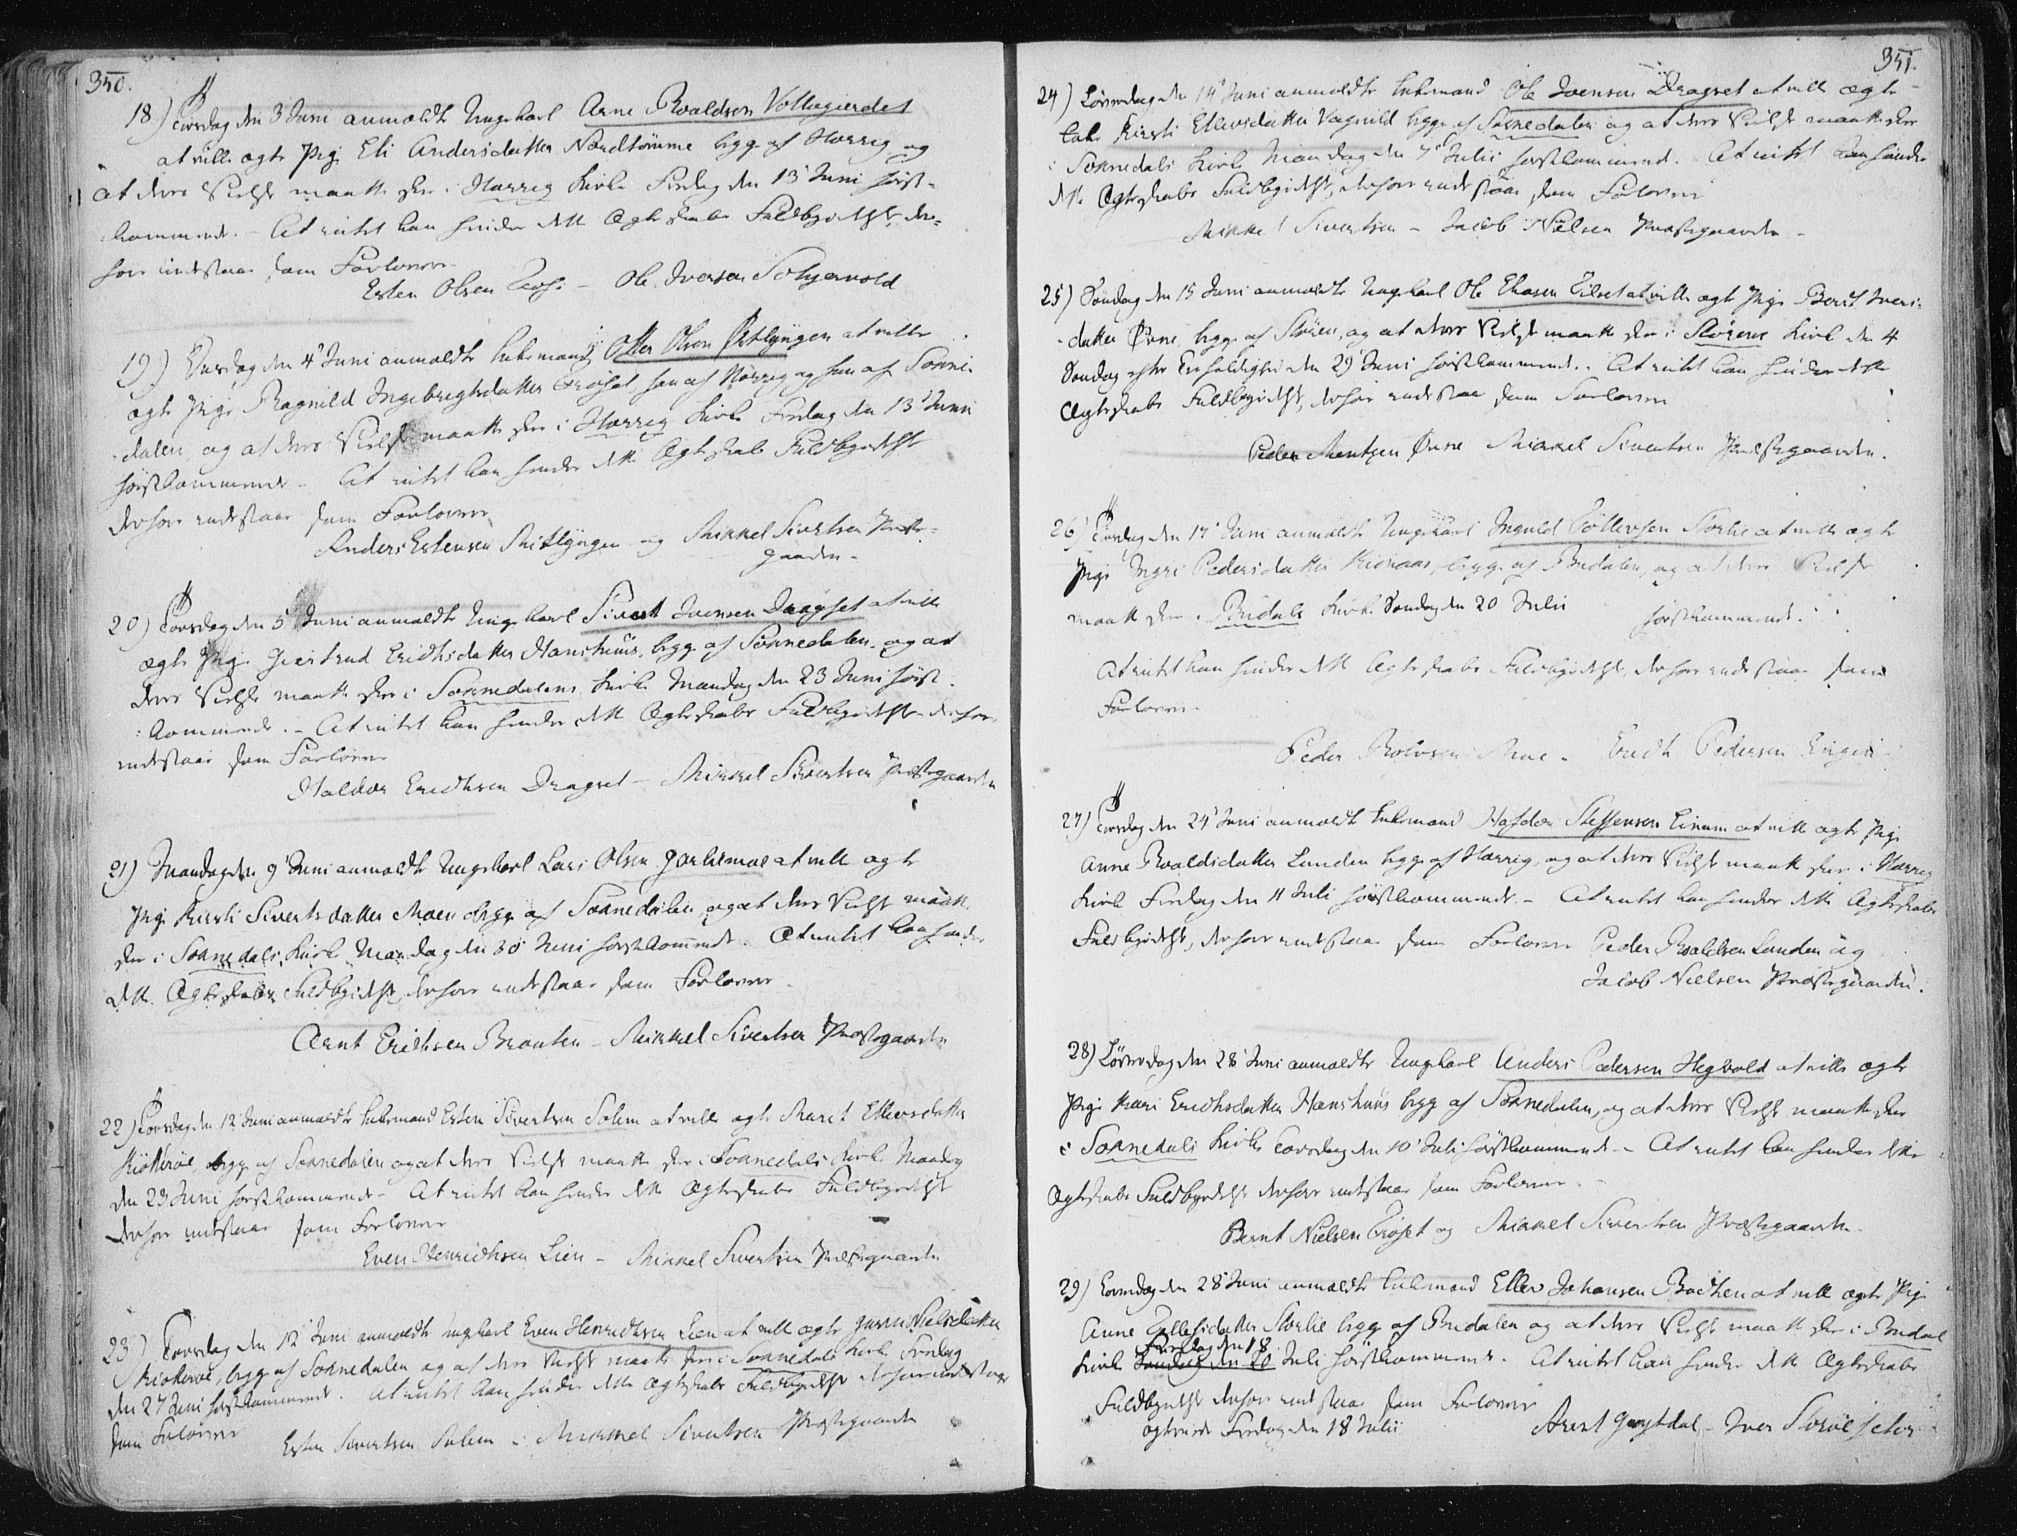 350.
18) Tirsdag den 3 Juni anmeldte Ungkarl Arne Roaldsen Vollegjerdet
at ville ægte Pige Eli Andersdatter Nordtømme begge af Horrig og
at deres Vielse maatte skee i Horrig Kirke Fredag den 13 Juni først-
kommende. - At intet kan hindre dette Ægteskabs Fuldbyrdelse, der-
for indestaar som Forlovere
Esten Olsen - Ole Iversen
19) Onsdag den 4 Juni anmeldte Enkemand Otter Olsen at ville
ægte Pige Ragnild Ingebregtsdatter Trøset, han af Horrig og hun af Sokne-
dalen, og at deres Vielse maatte skee i Horrig Kirke Fredag den 13 Juni
førstkommende - At intet kan hindre dette Ægteskabs Fuldbyrdelse
derfor indestaar som Forlovere
Anders Estensen - og Mikkel Sivertsen Præste-
gaarden -
20) Torsdag den 5 Juni anmeldte Ungkarl Sivert Iversen Dragset at ville
ægte Pige Giertrud Erichsdatter Hanshuus, begge af Soknedalen, og at
deres Vielse maatte skee i Soknedalens Kirke Mandag den 23 Juni først-
kommende. - At intet kan hindre dette Ægteskabs Fuldbyrdelse derfor
indestaar som Forlovere
Haldor Erichsen Dragset - Mikkel Sivertsen Præstegaarden
21) Mandag den 9 Juni anmeldte Ungkarl Lars Olsen at ville ægte
Pige Kirsti Sivertsdatter Moen begge af Soknedalen, og at deres Vielse maatte
skee i Soknedals Kirke Mandag den 30 Juni førstkommende. At intet kan hindre
dette Ægteskabs Fuldbyrdelse derfor indestaar som Forlovere
Arnt Erichsen Braaten - Mikkel Sivertsen Præstegaarden
22) Torsdag den 12 Juni anmeldte Enkemand Esten Sivertsen Solem at ville ægte Maret Ellevsdatter
begge af Soknedalen og at deres Vielse maatte skee i Soknedals Kirke Mandag
den 23 Juni førstkommende - At intet kan hindre dette Ægteskabs Fuldbyrdelse
derfor indestaar som Forlovere
Even Henrichsen Lien - Mikkel Sivertsen Præstegaarden
23) Torsdag den 12 Juni anmeldte Ungkarl Even Henrichsen Lien at ville ægte Nielsdatter
begge af Soknedalen og at deres Vielse maatte skee i Soknedals Kirke Fredag
den 27 Juni førstkommende. At intet kan hindre dette Ægteskabs Fuldbyrdelse derfor indestaar
som Forlovere Esten Sivertsen Solem - Mikkel Sivertsen Præstegaarden
351.
24) Løverdag den 14 Juni anmeldte Enkemand Ole Ivensen Dragset at ville ægte
Enke Kirsti Ellevsdatter Vagnild begge af Soknedalen og at deres Vielse maatte skee
i Soknedals Kirke Mandag den 7 Julii førstkommende. - At intet kan hindre
dette Ægteskabs Fuldbyrdelse, derfor indestaar som Forlovere
Mikkel Sivertsen - Jacob Nielsen Præstegaarden -
25) Søndag den 15 Juni anmeldte Ungkarl Ole at ville ægte Pige Berit Ivers-
datter begge af Støren, og at deres Vielse maatte skee i Størens Kirke den 4
Søndag efter Trefoldighed den 29 Juni førstkommende. - At intet kan hindre dette
Ægteskabs Fuldbyrdelse, derfor indestaar som Forlovere
Peder Mikkel Sivertsen Præstegaarden.
26) Tirsdag den 17 Juni anmeldte Ungkarl Ingvald at ville ægte
Pige Ingri Pedersdatter begge af Budalen, og at deres Vielse
maatte skee i Budals Kirke Søndag den 20 Julii førstkommende.
At intet kan hindre dette Ægteskabs Fuldbyrdelse, derfor indestaar som
Forlovere -
Peder - Erich Pedersen Engen
27) Tirsdag den 24 Juni anmeldte Enkemand Steffensen at ville ægte Pige
Anne Roaldsdatter Lunden begge af Horrig, og at deres Vielse maatte skee i Horrig
Kirke Fredag den 11 Juli førstkommende. - At intet kan hindre dette Ægteskabs
Fuldbyrdelse, derfor indestaar som Forlovere Peder Roaldsen Lunden og
Jacob Nielsen Præstegaarden.
28) Løverdag den 28 Juni anmeldte Ungkarl Anders Pedersen Hegvold at ville ægte
Pige Kari Erichsdatter Hanshuus begge af Soknedalen, og at deres Vielse maatte skee
i Soknedals Kirke Torsdag den 10 Juli førstkommende - At intet kan hindre dette
Ægteskabs Fuldbyrdelse derfor indestaar som Forlovere
Bernt Nielsen Trøset og Mikkel Sivertsen Præstegaarden
29) Løverdag den 28 Juni anmeldte Enkemand Ellev Johansen at ville ægte Pige
Anne begge af Budalen og at deres Vielse maatte skee i Budals
Fredag den 18
Kirke Søndag den 20 Juli førstkommende. At intet kan hindre dette Ægteskabs
Fuldbyrdelse derfor indestaar som Forlovere
ægteviede Fredag den 18 Julii
Arnt - Iver